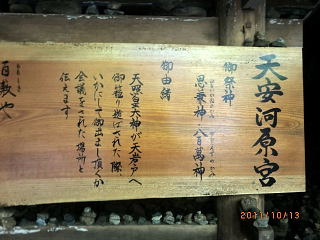 天安河原宮
御祭神
思兼神 八百萬神
御由緒
天照皇大神が天岩戸へ
御籠り遊ばされた際
いかにして御出まし頂くか
会議をされた場所と
伝えます
百敷や
2011/10/13